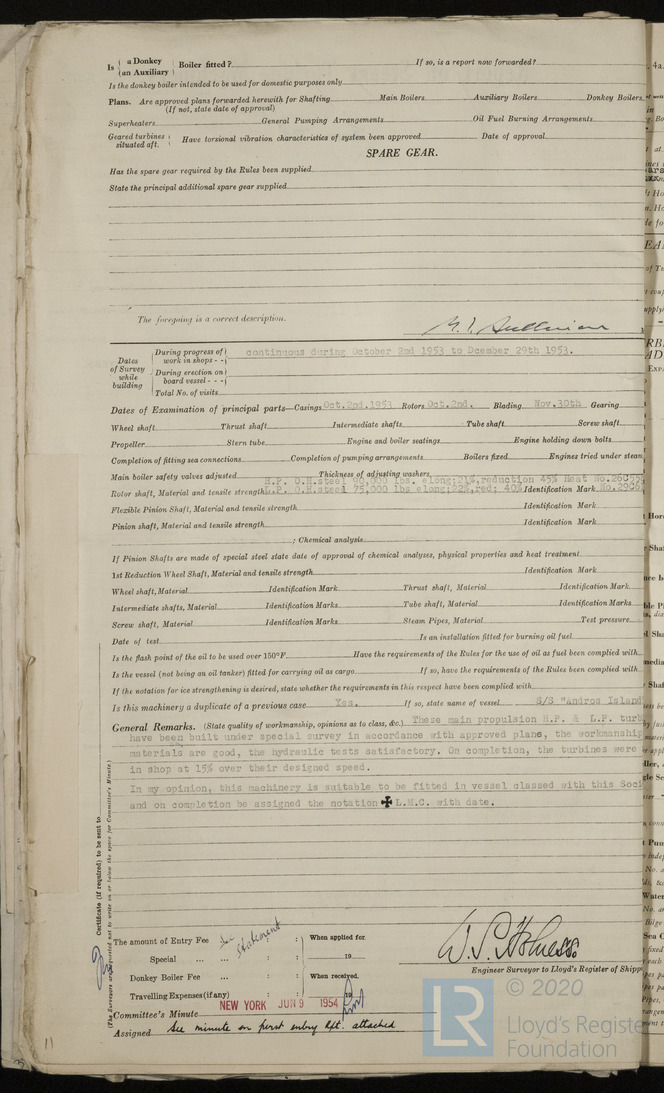 Is { a Donkey / an Auxiliary } Boiler fitted? If so, is a report now forwarded?
Is the donkey boiler intended to be used for domestic purposes only
Plans. Are approved plans forwarded herewith for Shafting Main Boilers Auxiliary Boilers Donkey Boilers
(If not, state date of approval)
Superheaters General Pumping Arrangements Oil Fuel Burning Arrangements
Geared turbines situated aft. } Have torsional vibration characteristics of system been approved Date of approval
SPARE GEAR.
Has the spare gear required by the Rules been supplied
State the principal additional spare gear supplied
The foregoing is a correct description.
Dates of Survey while building
During progress of work in shops - - continuous during October 2nd 1953 to Dcember 29th 1953.
During erection on board vessel - - -
Total No. of visits
Dates of Examination of principal parts—Casings Oct.2nd.1953 Rotors Oct.2nd. Blading Nov.30th Gearing
Wheel shaft Thrust shaft Intermediate shafts Tube shaft Screw shaft
Propeller Stern tube Engine and boiler seatings Engine holding down bolts
Completion of fitting sea connections Completion of pumping arrangements Boilers fixed Engines tried under steam
Main boiler safety valves adjusted Thickness of adjusting washers
H.P. O.H.steel 90,000 lbs. elong;21%,reduction 45% Heat No.
Rotor shaft, Material and tensile strength L.P. O.H.steel 75,000 lbs elong;22%,red; 40% Identification Mark No.
Flexible Pinion Shaft, Material and tensile strength Identification Mark
Pinion shaft, Material and tensile strength Identification Mark
; Chemical analysis
If Pinion Shafts are made of special steel state date of approval of chemical analyses, physical properties and heat treatment
1st Reduction Wheel Shaft, Material and tensile strength Identification Mark
Wheel shaft, Material Identification Mark Thrust shaft, Material Identification Mark
Intermediate shafts, Material Identification Marks Tube shaft, Material Identification Marks
Screw shaft, Material Identification Marks Steam Pipes, Material Test pressure
Date of test Is an installation fitted for burning oil fuel
Is the flash point of the oil to be used over 150°F. Have the requirements of the Rules for the use of oil as fuel been complied with
Is the vessel (not being an oil tanker) fitted for carrying oil as cargo If so, have the requirements of the Rules been complied with
If the notation for ice strengthening is desired, state whether the requirements in this respect have been complied with
Is this machinery a duplicate of a previous case Yes. If so, state name of vessel S/S "Andros Island
General Remarks. (State quality of workmanship, opinions as to class, &c.) These main propulsion H.P. & L.P. turb
have been built under special survey in accordance with approved plans, the workmanship
materials are good, the hydraulic tests satisfactory. On completion, the turbines were
in shop at 15% over their designed speed.
In my opinion, this machinery is suitable to be fitted in vessel classed with this Soci
and on completion be assigned the notation ✠ L.M.C. with date.
Certificate (if required) to be sent to
(The Surveyors are requested not to write on or below the space for Committee's Minute.)
The amount of Entry Fee : : When applied for
Statement
Special ... ... : : 19
Donkey Boiler Fee ... : : When received.
Travelling Expenses (if any) : : 19
W. S. Holness.
Engineer Surveyor to Lloyd's Register of Shipp
NEW YORK JUN 9 1954
Committee's Minute
Assigned See minute on first entry Rpt. attached
LR © 2020
Lloyd's Registe
Foundation